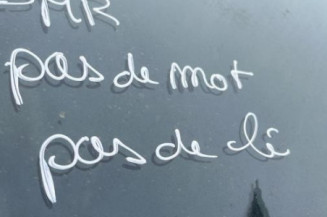 pas de mot
pas de clé